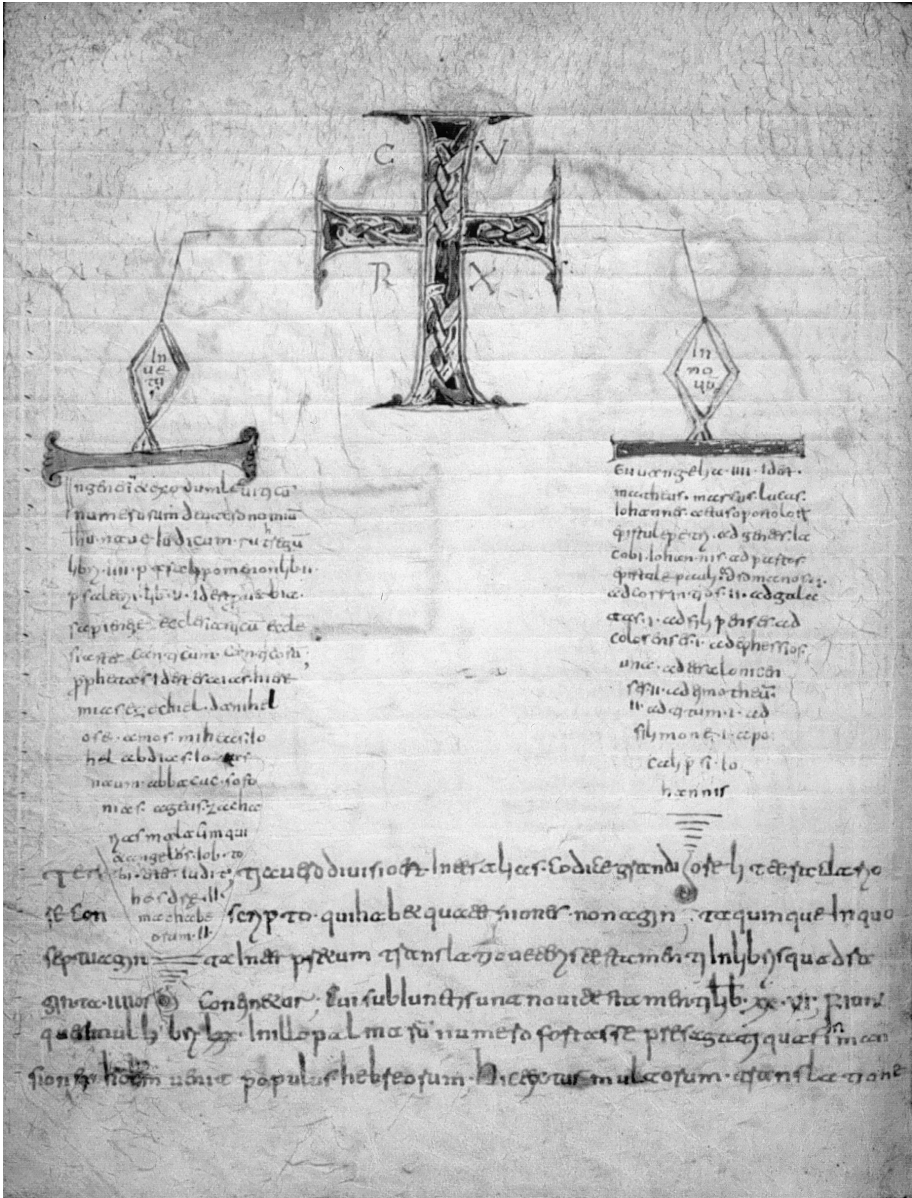 C V
R X
In
ue
In
no
uū
In genesī & exodum leuiticū
numerorum deuteronomiū
ihū naue iudicum ruth regū
lib iiii paralypomenon lib ii
psalterii lib v idest prouerbia
sapientie ecclesiasticū eccle
siasten canticum canticorū
pphetas idest esaias hiere
mias ezechiel danihel
ose amos miheas io
hel abdias ionas
naum abbacuc sofo
nias ageus zacha
rias malachim qui
& angelus iob to
bi ester iudit
hesdre ii
machabe
orum ii
Euuangelia iiii idest
matheus marcus lucas
Iohannes actus apostolorum
epistule petri ad gentes ia
cobi iohannis ad partos
epistule pauli ad romanos i
ad corintios ii ad gala
tas i ad filipenses ad
colosenses i ad ephesios
una ad tesalonicen
ses ii ad timotheū
ii ad titum i ad
filimone i apo
calipsi io
hannis
Tertia uero diuisio est inter alias codice grandiore littera clario
re con scripto qui habet quaterniones nonaginta quinque in quo
septuaginta interpretum translatio ueteris testamenti in libris quadra
ginta iiiior continetur cui subiunctis una noui testamenti lib xx vi fiunt
simul libri lxx in illo palmarū numero fortasse presagati quas in man
sione helim inuenit populus hebreorum hic textus multorum translatione